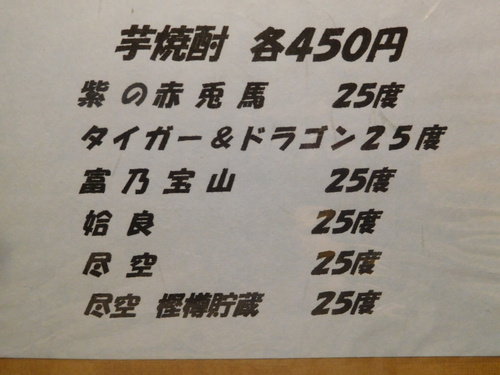 芋焼酎 各450円
紫の赤兎馬 25度
タイガー&ドラゴン25度
富乃宝山 25度
姶良 25度
尽空 25度
尽空 樫樽貯蔵 25度